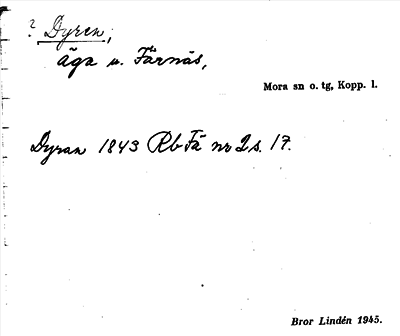 ? Dyren,
äga u. Färnäs,
Mora sn o. tg, Kopp. l.
Dyran 1843 Rb Fä nr 2 s. 17.
Bror Lindén 1945.